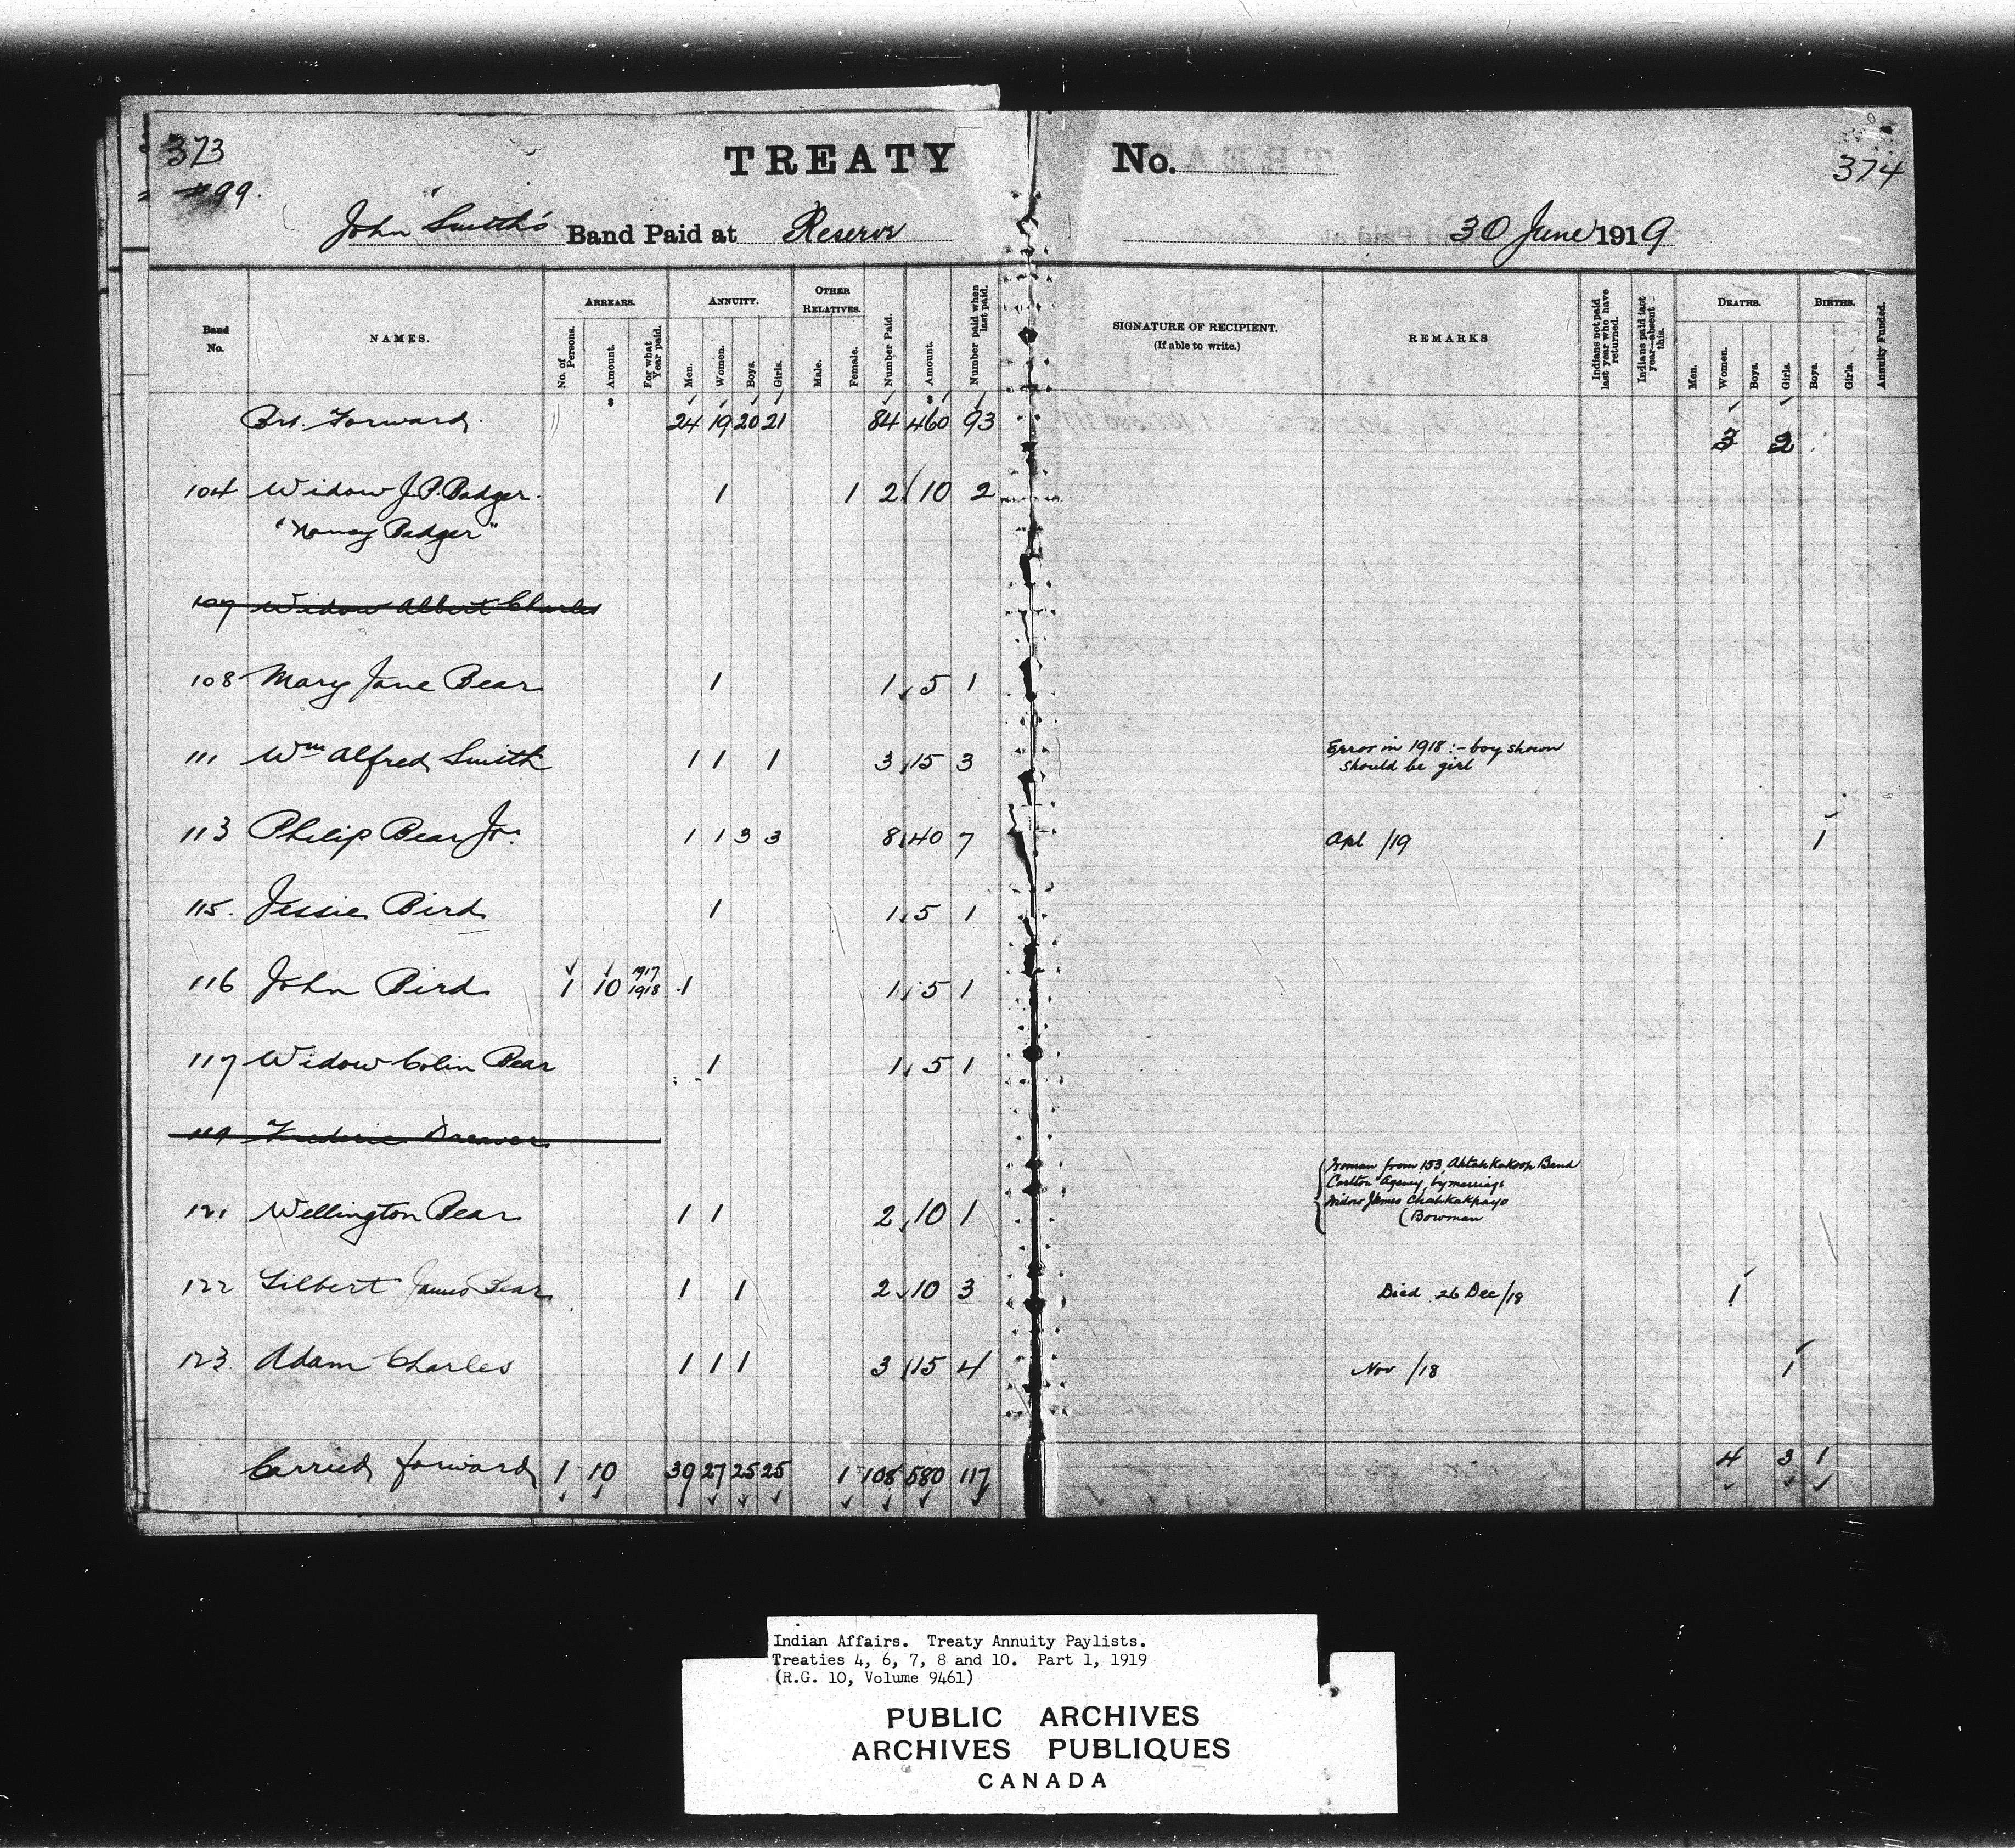 373
#99.
TREATY No.
374
John Smith's Band Paid at Reserve 30 June 1919
Band No.
NAMES.
ARREARS.
No. of Persons.
Amount.
For what Year paid.
ANNUITY.
Men.
Women.
Boys.
Girls.
OTHER RELATIVES.
Male.
Female.
Number Paid.
Amount.
Number paid when last paid.
SIGNATURE OF RECIPIENT.
(If able to write.)
REMARKS
Indians not paid last year who have returned.
Indians paid last year—absent this.
DEATHS.
Men.
Women.
Boys.
Girls.
BIRTHS.
Boys.
Girls.
Annuity Funded.
Brt. Forward. 24 19 20 21 84 460 93 3 2
104 Widow J.P. Badger. 1 1 2 10 2
"Nancy Badger"
107 Widow Albert Charles
108 Mary Jane Bear 1 1 5 1
111 Wm Alfred Smith 1 1 1 3 15 3 Error in 1918:- boy shown
should be girl
113 Philip Bear Jr. 1 1 3 3 8 40 7 Apl /19 1
115. Jessie Bird 1 1 5 1
116 John Bird 1 10 1917 1918 1 1 5 1
117 Widow Colin Bear 1 1 5 1
119 Frederic Dreaver
Woman from 153, Ahtahkakoop Band
Carlton Agency, by marriage
Widow James Chatkakpayo
(Bowman
121 Wellington Bear 1 1 2 10 1
122 Gilbert James Bear 1 1 2 10 3 Died 26 Dec/18 1
123. Adam Charles 1 1 1 3 15 4 Nov /18 1
Carried forward 1 10 39 27 25 25 1 108 580 117 4 3 1
Indian Affairs. Treaty Annuity Paylists.
Treaties 4, 6, 7, 8 and 10. Part 1, 1919
(R.G. 10, Volume 9461)
PUBLIC ARCHIVES
ARCHIVES PUBLIQUES
CANADA